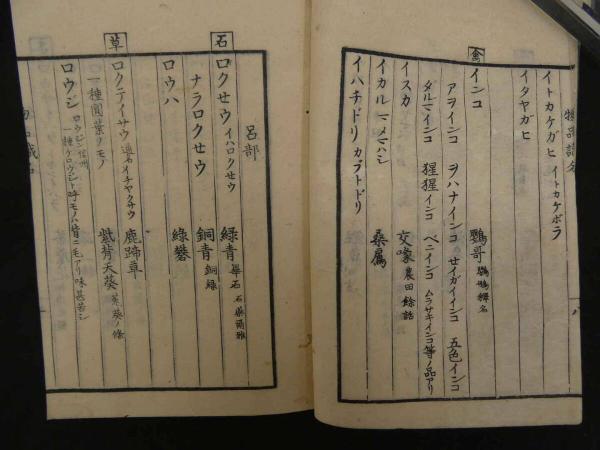 物品識名
イトカケガヒ イトカケボラ
イタヤガヒ
禽
インコ 鸚哥 鸚䳇釋名
アヲインコ ヲハナインコ セイガイインコ 五色インコ
ダルマインコ 猩猩インコ ベニインコ ムラサキインコ等ノ品アリ
イスカ 交喙 農田餘話
イカル マメマハシ 桑鳲
イハチドリ カブトドリ
八
呂部
石
ロクせウ イハロクせウ 緑青 畢石 石藥爾雅
ナラロクせウ 銅青 銅緑
ロウハ 緑礬
草
ロクテイサウ 通名イチヤクサウ 鹿蹄草
一種圓葉ノモノ 紫背天葵 菟葵ノ條
ロウジ ロウジン信州
一種ケロウジト呼モノハ背ニ毛アリ味甚苦シ